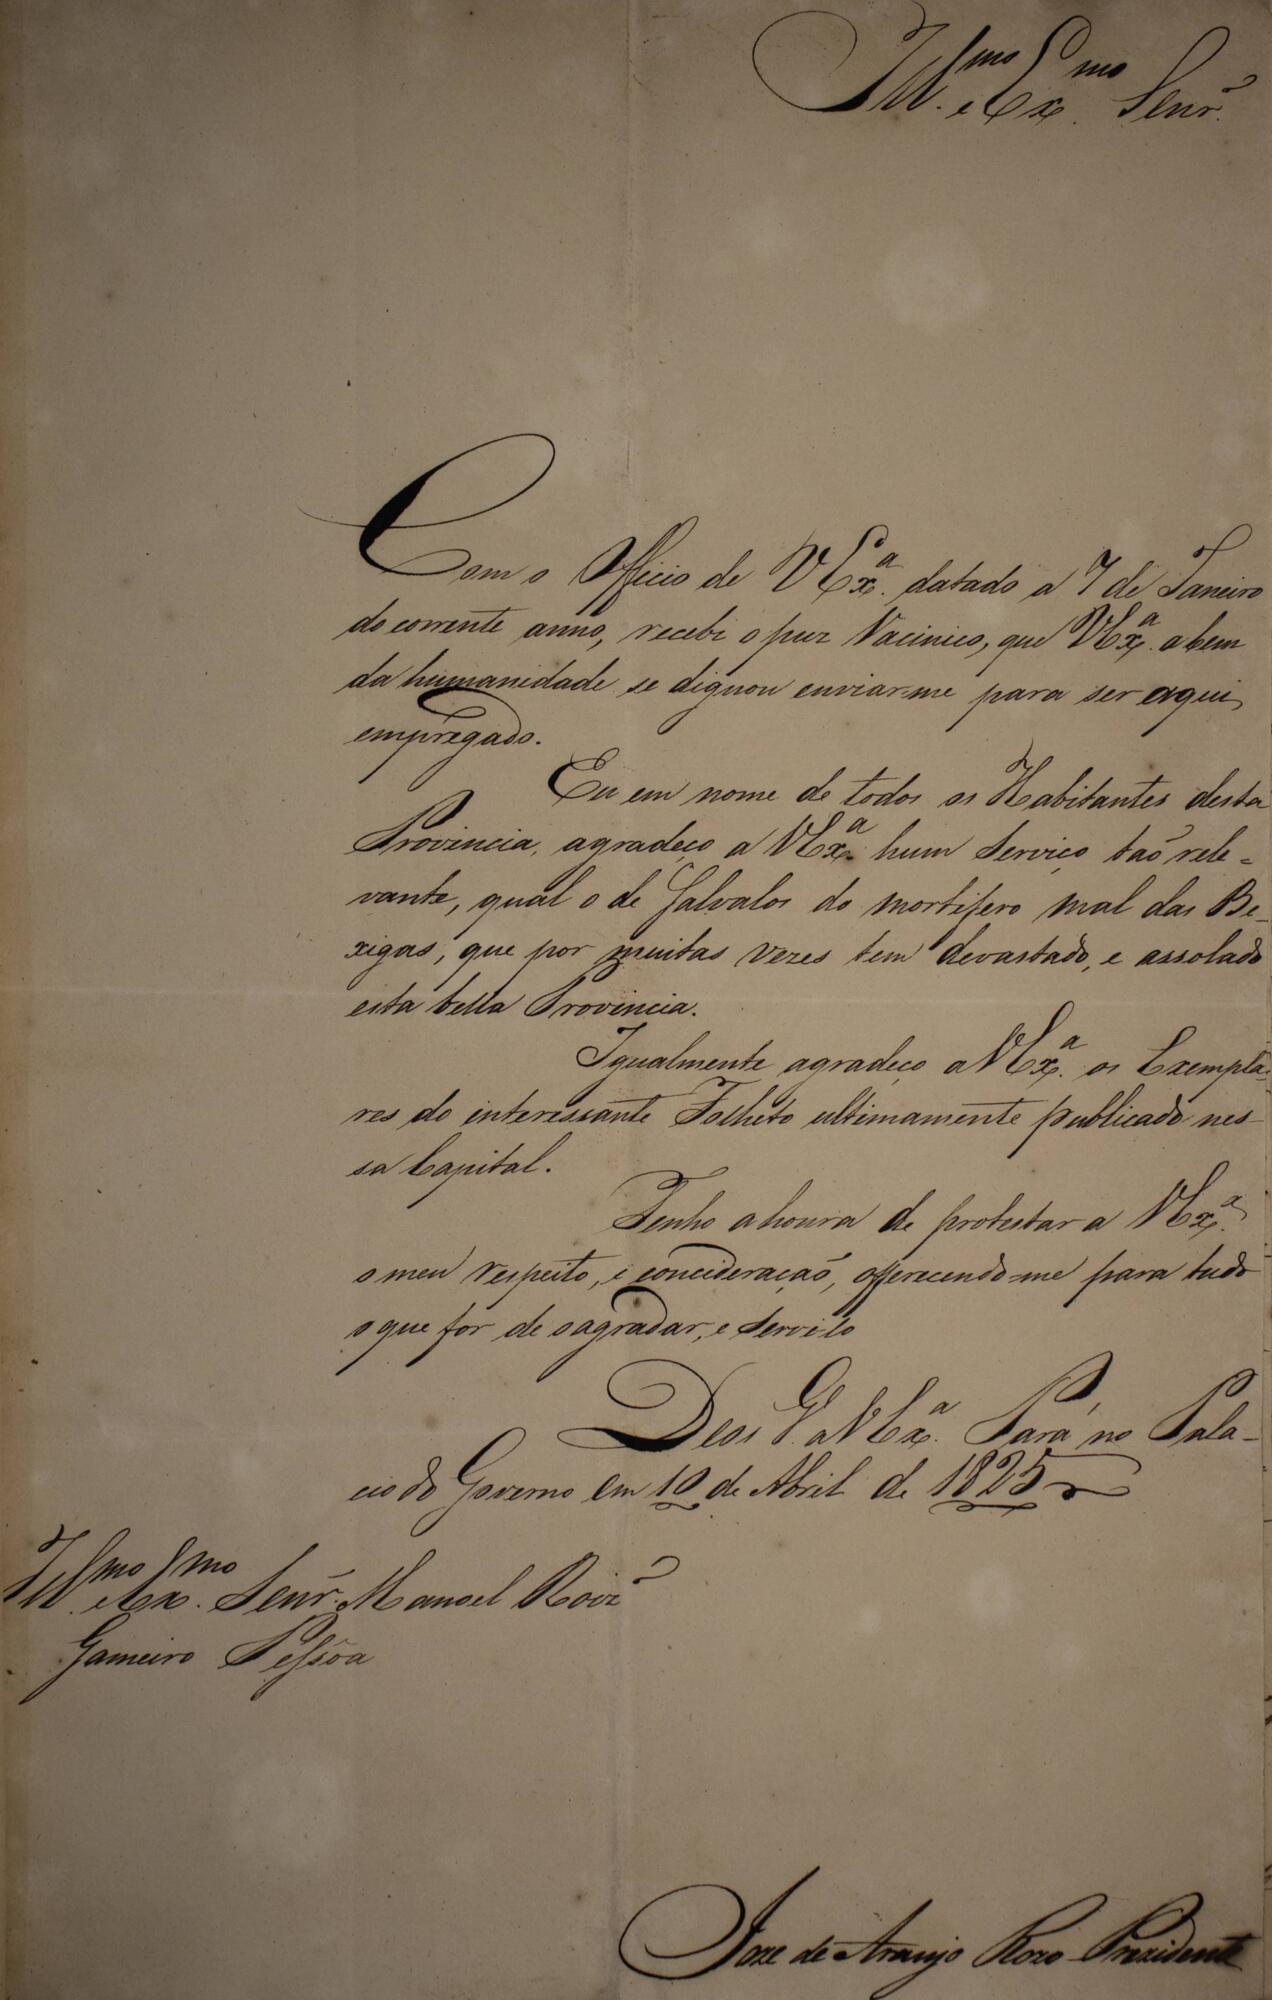 Ill.mo e Ex.mo Senr.
Com o Officio de V Ex.a datado a 7 de Janeiro
do corrente anno, recebi o puz Vacinico, que V Ex.a a bem
da humanidade se dignou enviar=me para ser aqui
empregado.
Eu em nome de todos os Habitantes desta
Provincia, agradeço a V Ex.a hum Serviço taõ rele=
vante, qual o de Salvalos do mortifero mal das Be=
xigas, que por muitas vezes tem devastado, e assolado
esta bella Provincia.
Igualmente agradeço a V Ex.a os Exempla=
res do interessante Folheto ultimamente publicado nes=
sa Capital.
Tenho a honra de protestar a V Ex.a
o meu respeito, e concideraçaõ, offerecendo=me para tudo
o que for de o agradar, e Servilo
Deos G. a V Ex.a Pará no Pala=
cio do Governo em 10 de Abril de 1825
Ill.mo e Ex.mo Senr. Manoel Roiz
Gameiro Pessôa
Joze de Araujo Rozo Prezidente